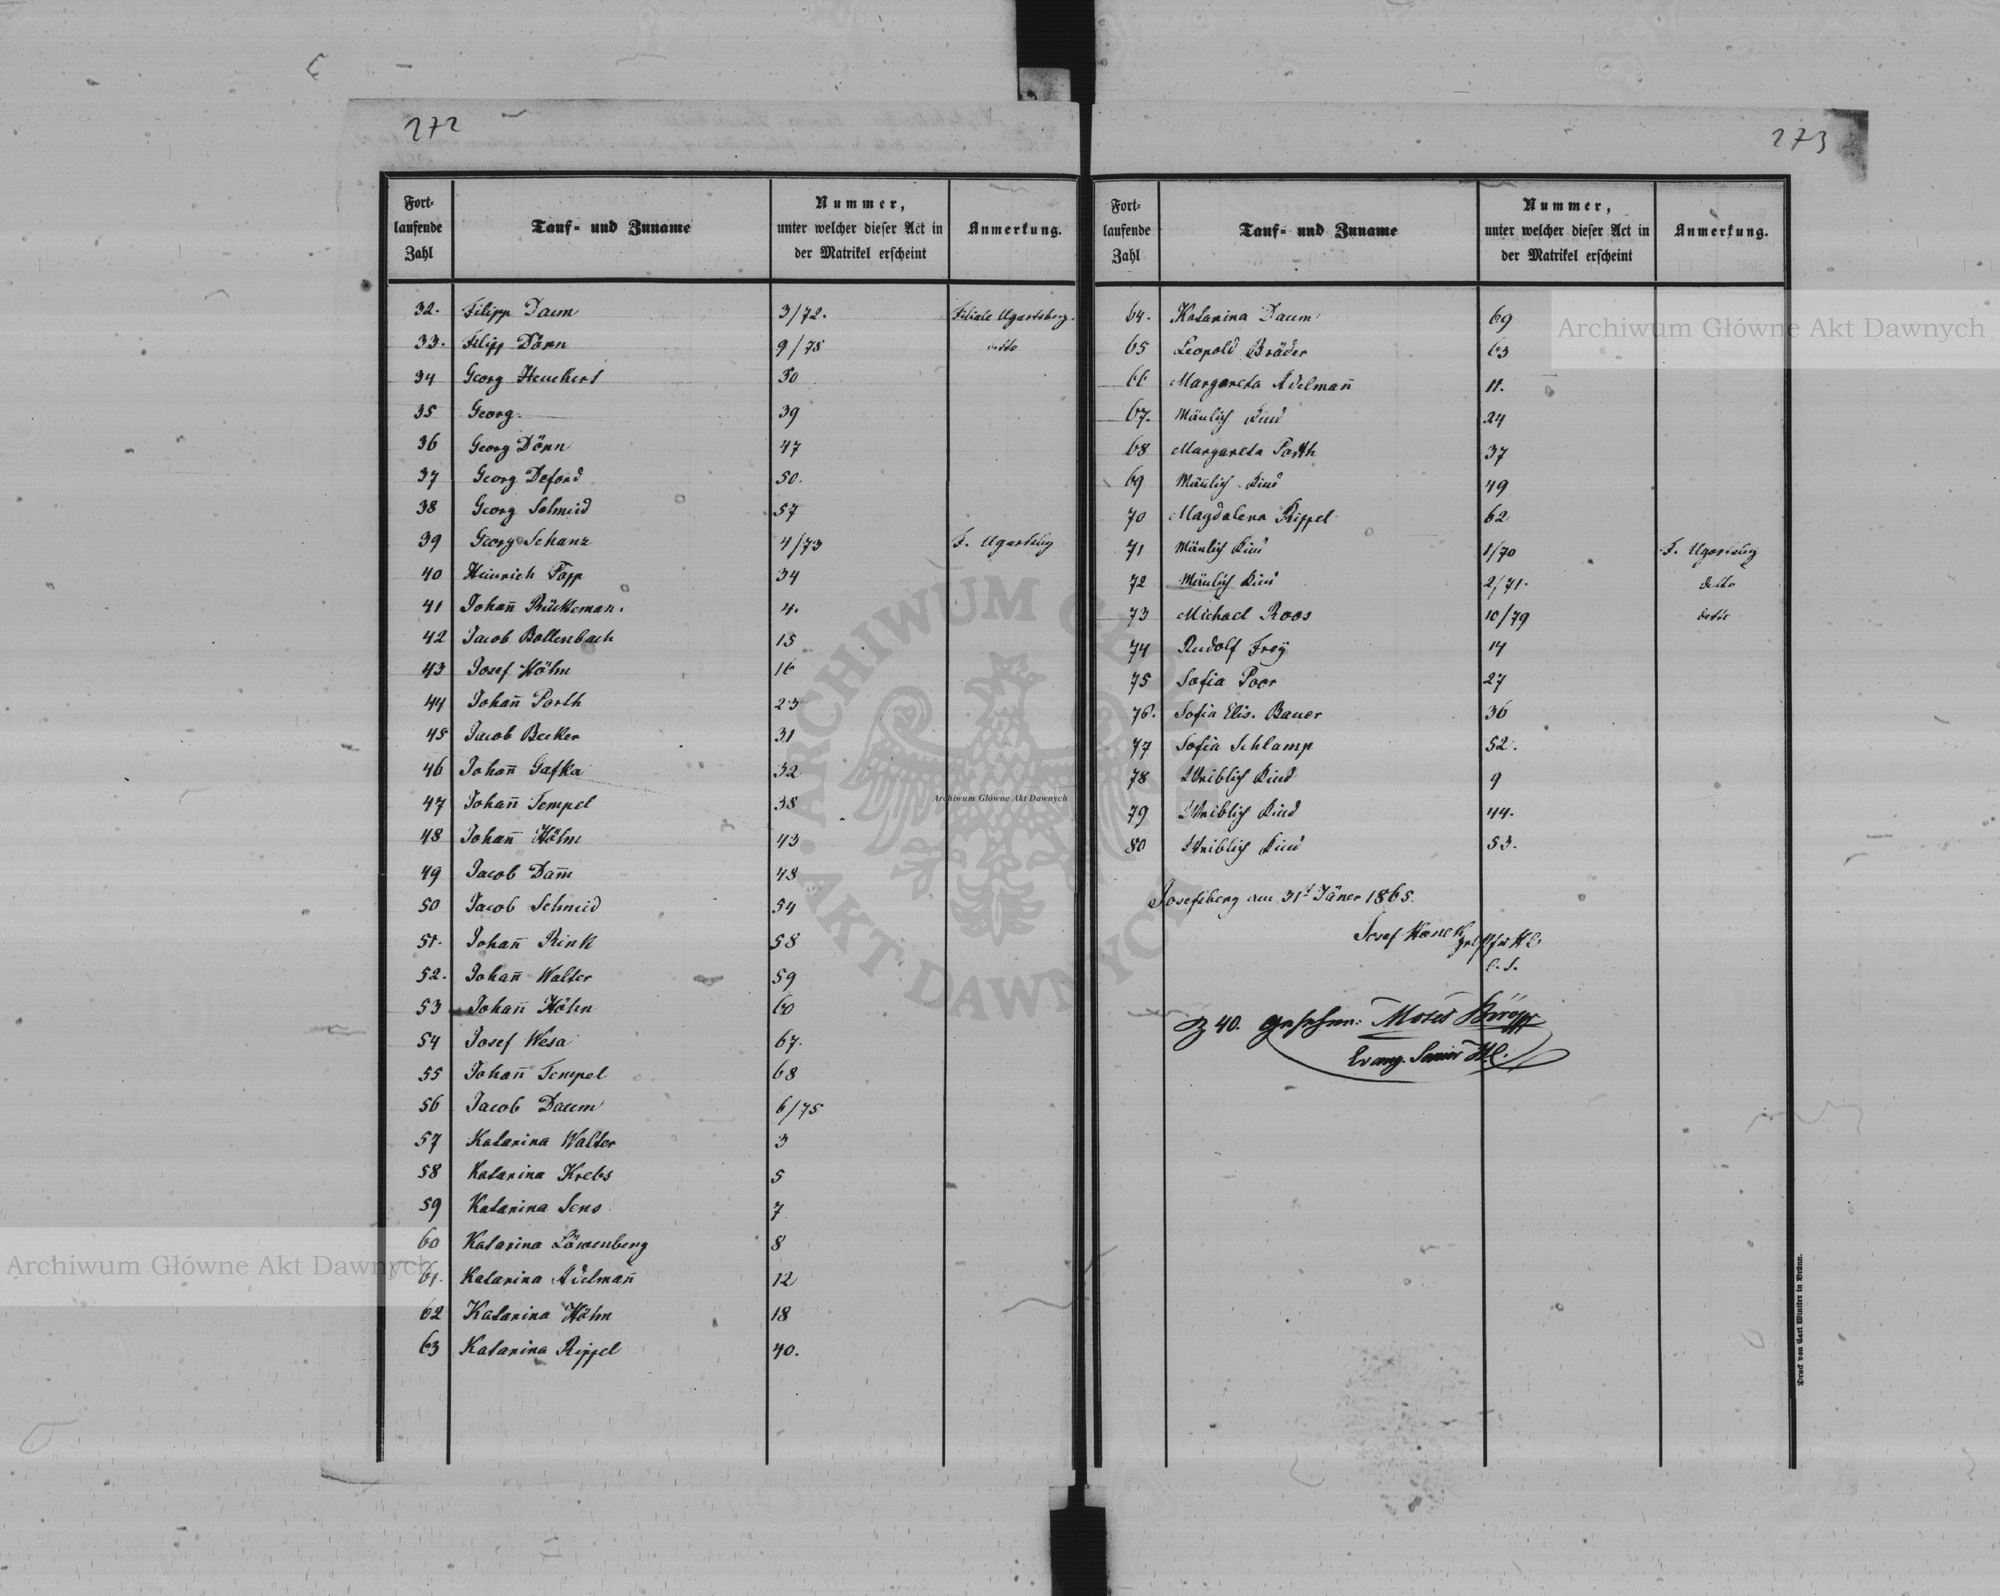 272
Fort-
laufende
Zahl
Tauf- und Zuname
Nummer,
unter welcher dieser Act in
der Matrikel erscheint
Anmerkung.
32. Filipp Daum 3/72. Filiale Ugartsberg.
33. Filipp Dörn 9/78 detto
34 Georg Heuchert 30
35 Georg. 39
36 Georg Dörn 47
37 Georg Deford 50.
38 Georg Schmid 57
39 Georg Schanz 4/73 F. Ugartsberg
40 Heinrich Popp 34
41 Johann̄ Rückeman. 4.
42 Jacob Bollenbach 15
43 Josef Höhn 16
44 Johann̄ Porth 23
45 Jacob Becker 31
46 Johann̄ Gafka 32
47 Johann̄ Tempel 38
48 Johann̄ Höhn 43
49 Jacob Dam̄ 48
50 Jacob Schmid 54
51. Johann̄ Rink 58
52. Johann̄ Walter 59
53 Johann̄ Höhn 60
54 Josef Wesa 67.
55 Johann̄ Tempel 68
56 Jacob Daum 6/75
57 Katarina Walter 3
58 Katarina Krebs 5
59 Katarina Sens 7
60 Katarina Löwenberg 8
61. Katarina Adelman̄ 12
62 Katarina Höhn 18
63 Katarina Rippel 40.
273
Fort-
laufende
Zahl
Tauf- und Zuname
Nummer,
unter welcher dieser Act in
der Matrikel erscheint
Anmerkung.
64. Katarina Daum 69
65 Leopold Bräder 63
66 Margareta Adelman̄ 11.
67. Mänlich Kind 24
68 Margareta Porth 37
69 Mänlich Kind 49
70 Magdalena Rippel 62
71 Mänlich Kind 1/70 F. Ugartsberg
72 Mänlich Kind 2/71. detto
73 Michael Roos 10/79 detto
74 Rudolf Frey 14
75 Sofia Poor 27
76. Sofia Elis. Bauer 36
77 Sofia Schlamp 52.
78 Weiblich Kind 9
79 Weiblich Kind 44.
80 Weiblich Kind 53.
Josefsberg am 31t Jäner 1865.
Josef Hanek
Z 40. gesehen: Moses
Evang. Senior
Druck von Carl Winiker in Brünn.
Archiwum Główne Akt Dawnych
Archiwum Główne Akt Dawnych
Archiwum Główne Akt Dawnych